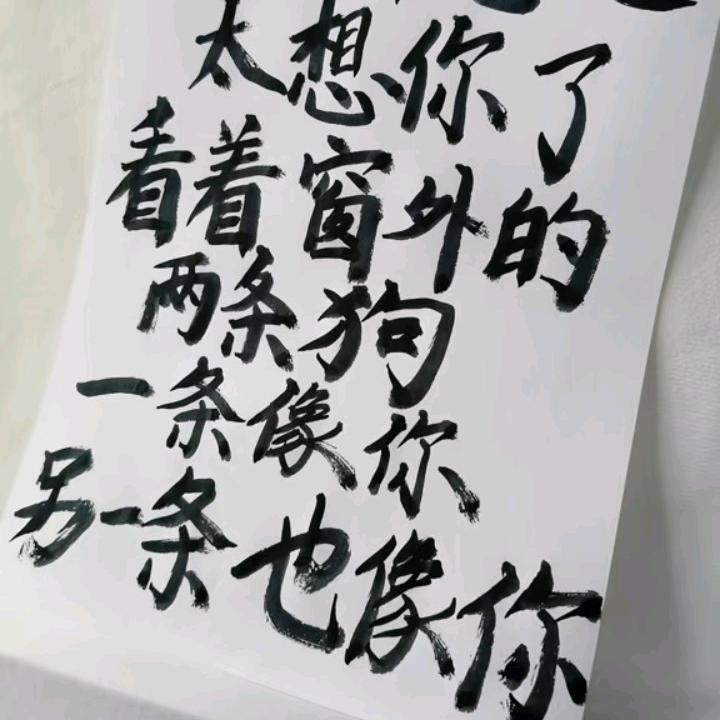 太想你了
看着窗外的
两条狗
一条像你
另一条也像你